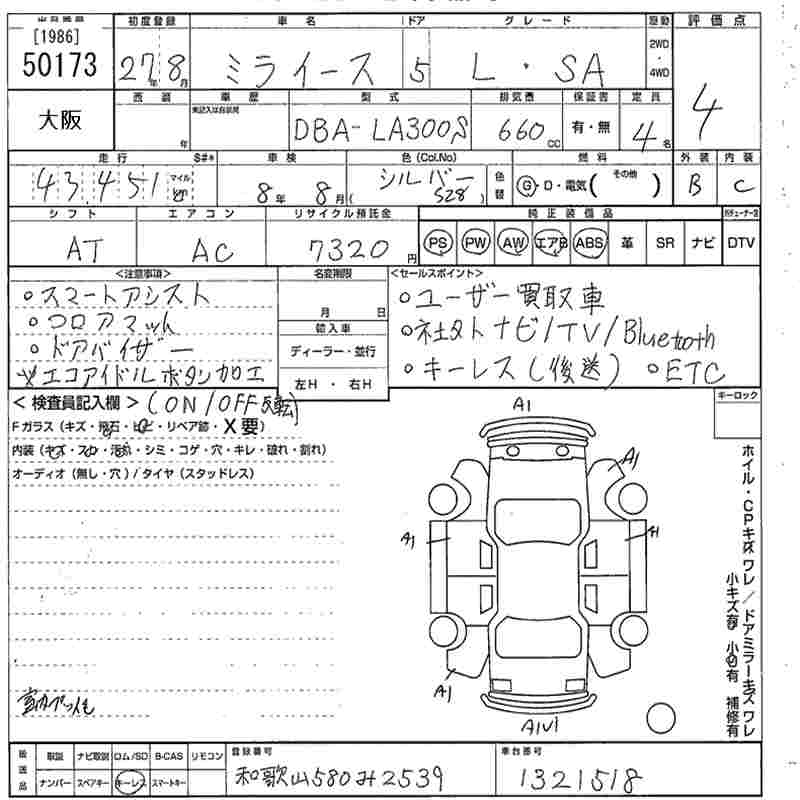 [1986] 初度登録 車名 ドア グレード 駆動 評価点
50173 27年8月 ミライース 5 L・SA 2WD・4WD 4
大阪 西暦 年 車歴 未記入は自家用 型式 排気量 保証書 定員
DBA-LA300S 660cc 有・無 4名
走行 S#* 車検 色(Col.No) 燃料 外装 内装
43,451 マイル km 8年8月 シルバー S28 色替 G・D・電気(その他) B C
シフト エアコン リサイクル預託金 純正装備品
AT AC 7320円 PS PW AW エアB ABS 革 SR ナビ DTV
<注意事項> 名変期限 <セールスポイント>
○スマートアシスト 月 日 ○ユーザー買取車
○フロアマット 輸入車 ○社外ナビ/TV/Bluetooth
○ドアバイザー ディーラー・並行 ○キーレス(後送) ○ETC
エコアイドルボタンカロエ 左H・右H
<検査員記入欄> (ON/OFF反転) キーロック
Fガラス(キズ・飛石・ヒビ・リペア跡・X要)
内装(キズ・スレ・汚れ・シミ・コゲ・穴・キレ・破れ・割れ)
オーディオ(無し・穴)/タイヤ(スタッドレス)
A1
A1
A1 A1
A1
A1V1
ホイル・CPキズワレ/ドアミラーキズワレ
小キズ有 小凹有 補修有
後送品 取説 ナビ取説 ロム/SD B-CAS リモコン 登録番号 車台番号
ナンバー スペアキー キーレス スマートキー 和歌山580み2539 1321518